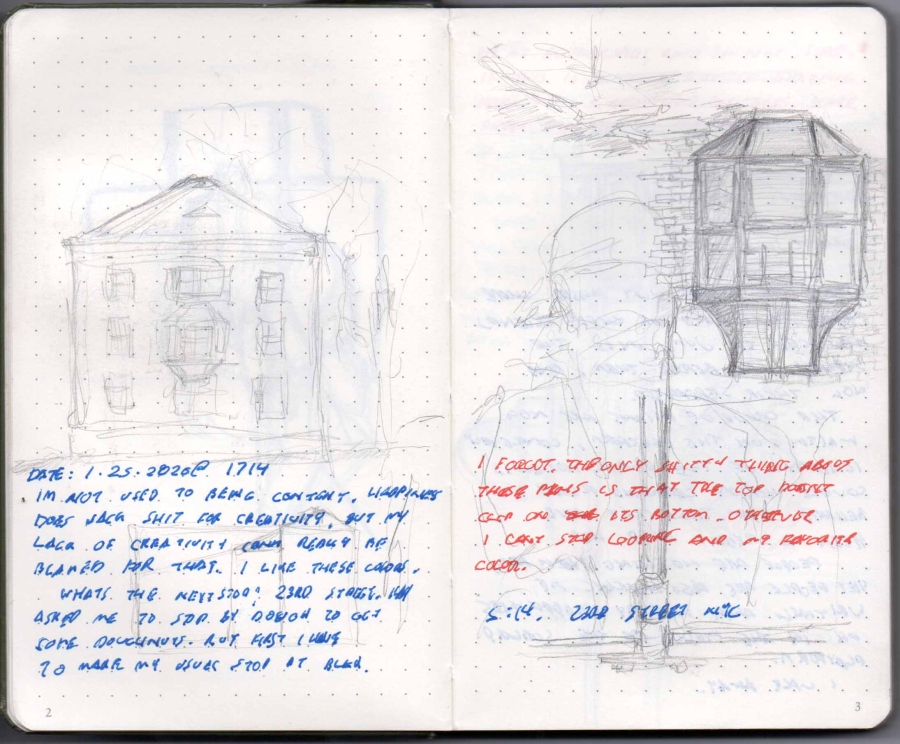 DATE: 1.25.2020@ 1714
IM NOT USED TO BEING CONTENT. HAPPINESS
DOES JACK SHIT FOR CREATIVITY, BUT MY
LACK OF CREATIVITY CANT REALLY BE
BLAMED FOR THAT. I LIKE THESE COLORS.
WHATS THE NEXT STOP? 23RD STREET.
ASKED ME TO STOP BY TO GET
SOME DOUGHNUTS. BUT FIRST I HAVE
TO MAKE MY USUAL STOP AT BLICK.
2
I FORGOT. THE ONLY SHITTY THING ABOUT
THESE PENS IS THAT THE TOP DOESNT
CLIP ON ITS BOTTOM. OTHERWISE
I CANT STOP LOOKING AND MY FAVORITE
COLOR.
5:14. 23RD STREET NYC
3